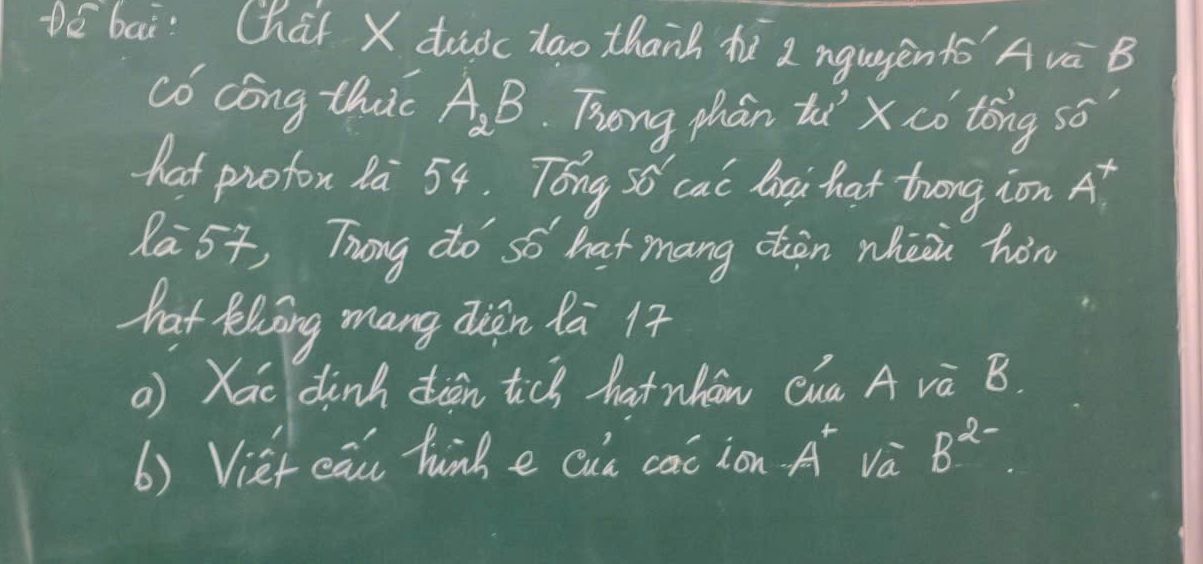 Đề bài: Chất X được tạo thành từ 2 nguyên tố A và B
có công thức A₂B. Trong phân tử X có tổng số
hạt proton là 54. Tổng số các loại hạt trong ion A⁺
là 57, Trong đó số hạt mang điện nhiều hơn
hạt không mang điện là 17
a) Xác định điện tích hạt nhân của A và B.
b) Viết cấu hình e của các ion A⁺ và B²⁻.